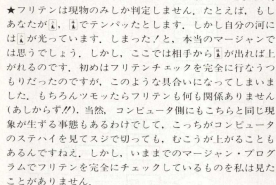 ★フリテンは現物のみしか判定しません．たとえば，もし
あなたが，でテンパッたとします．しかし自分の河に
は が光っています．しまった！と，本当のマージャンで
は思うでしょう．しかし，ここでは相手から が出れば上
がれるのです．初めはフリテンチェックを完全に行なうつ
もりだったのですが，このような具合いになってしまいま
した．もちろんツモッたらフリテンも何も関係ありません
(あしからず!!)．当然，コンピュータ側にもこちらと同じ現
象が生ずる事態もあるわけでして，こっちがコンピュータ
のステハイを見てスジで切っても，むこうが上がることも
あるんですねえ．しかし，いままでのマージャン・プログ
ラムでフリテンを完全にチェックしているものを私は見た
ことがありません．